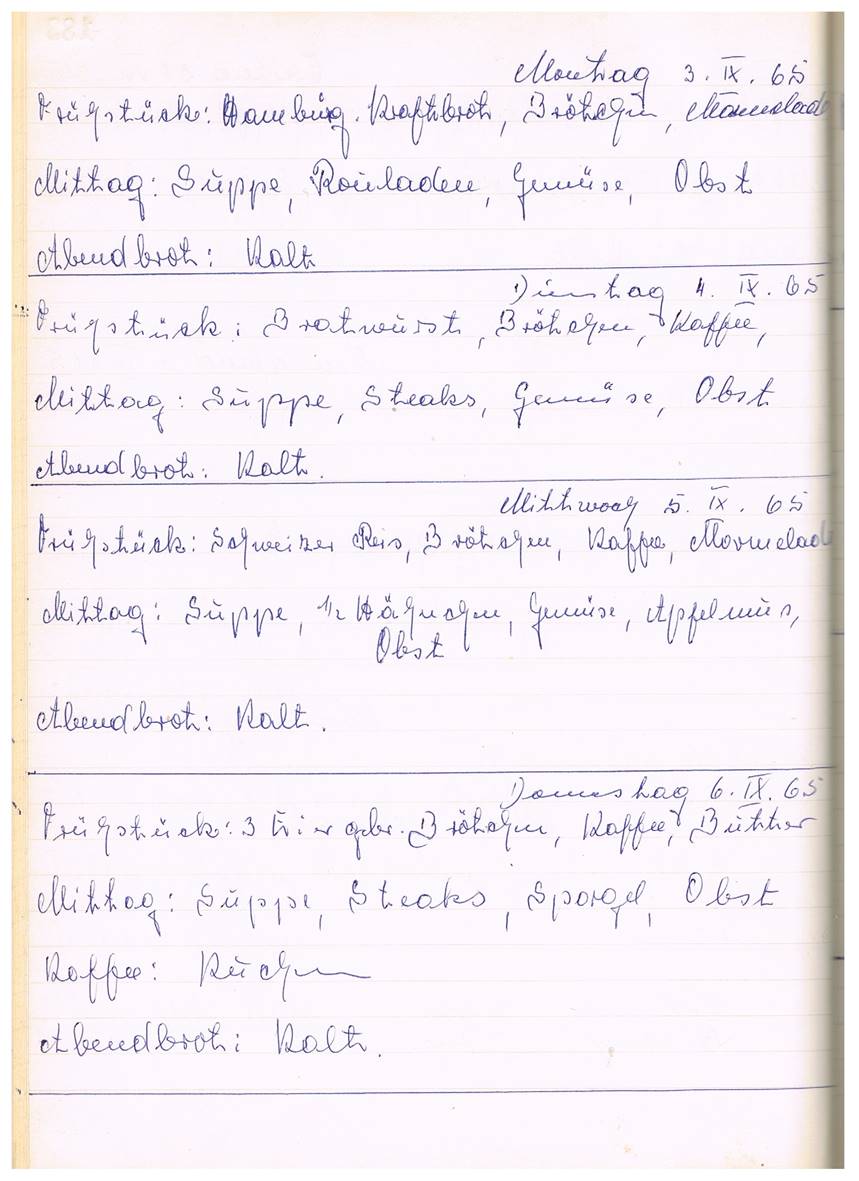 Montag 3. IX. 65
Frühstück: Hamburg. Kraftbroth, Bröthchen, Marmelade
Mitttag: Suppe, Rouladen, Gemüse, Obst
Abendbroth: Kalt
Dienstag 4. IX. 65
Frühstück: Bratwurst, Bröthchen, Kaffee,
Mitttag: Suppe, Steaks, Gemüse, Obst
Abendbroth: Kalt.
Mitttwoch 5. IX. 65
Frühstück: Schweizer Reis, Bröthchen, Kaffee, Marmelade
Mitttag: Suppe, 1/2 Hähnchen, Gemüse, Apfelmus,
Obst
Abendbroth: Kalt.
Donnerstag 6. IX. 65
Frühstück: 3 Eier gebr. Bröthchen, Kaffee, Butter
Mitttag: Suppe, Steaks, Spargel, Obst
Kaffee: Kuchen
Abendbroth: Kalt.